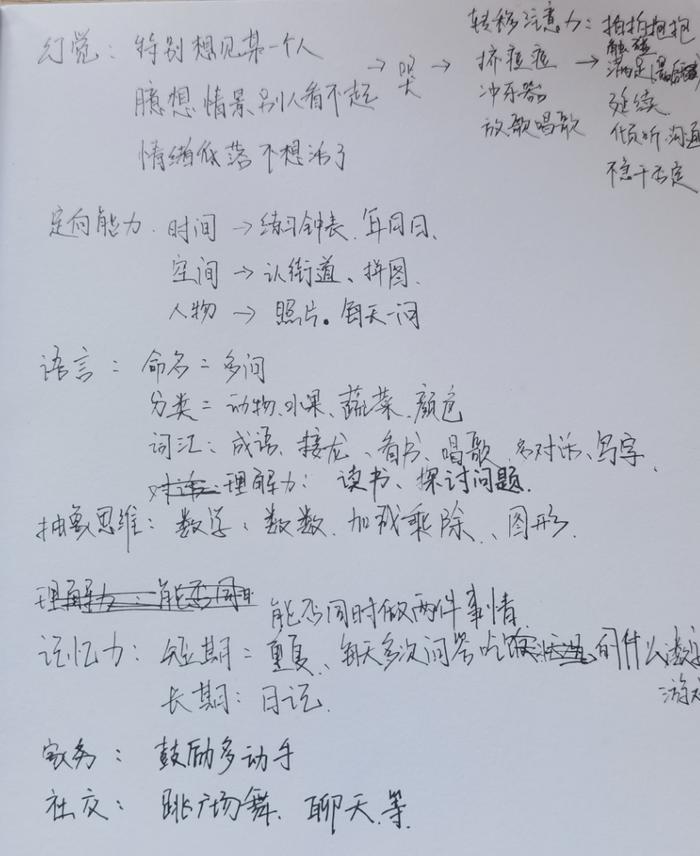 转移注意力：拍拍抱抱
幻觉：特别想见某一个人
触碰
臆想情景别人看不起 → 哭 → 挤痘痘 → 满足
冲牙器
延续
放歌唱歌
倾听.沟通
情绪低落不想活了
不急于否定
定向能力. 时间 → 练习钟表、年月日、
空间 → 认街道、拼图.
人物 → 照片。每天一问
语言： 命名＝多问
分类＝动物.水果、蔬菜.颜色
词汇：成语、接龙、看书、唱歌、多对话、写字、
理解力： 读书、探讨问题.
抽象思维：数学、数数.加减乘除、图形.
理解力：能否同时
能否同时做两件事情
记忆力： 短期＝重复、每天多次问答吃的什么 数字
游戏
长期：日记.
家务： 鼓励多动手
社交： 跳广场舞、聊天.等.